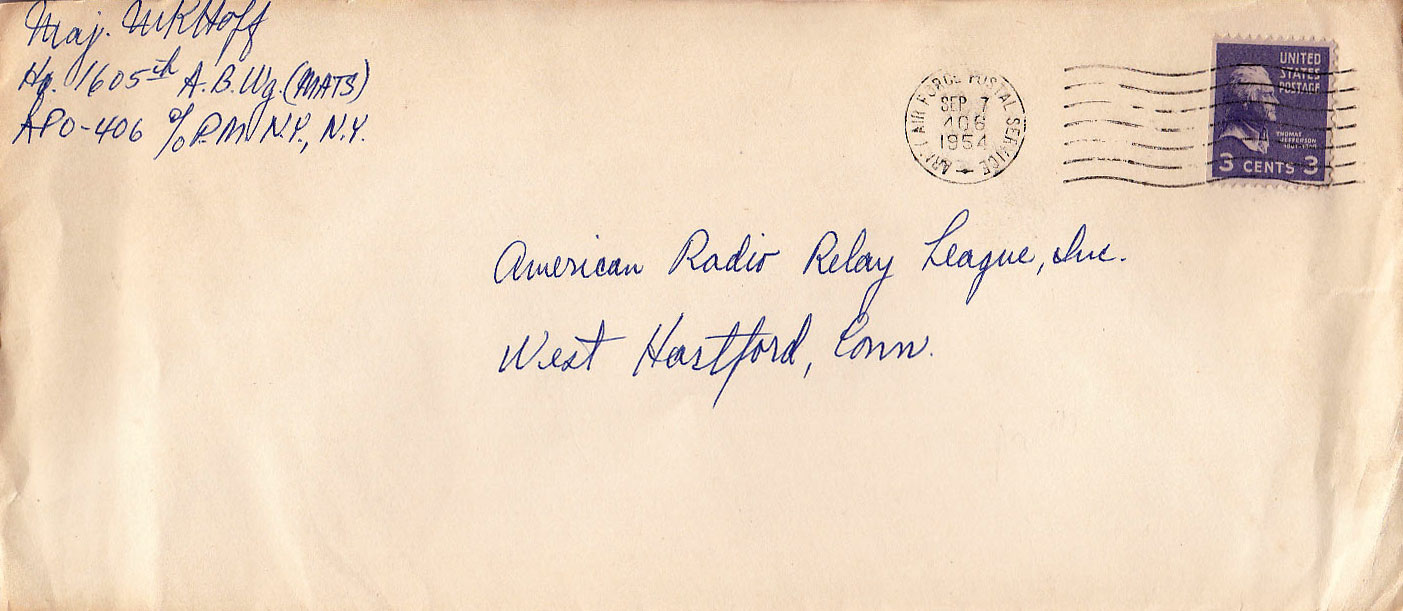 Maj. MKHoff
Hq. 1605th A.B.Wg. (MATS)
APO-406 c/o P.M. N.Y., N.Y.
ARMY AIR FORCE POSTAL SERVICE
SEP 7
406
1954
UNITED
STATES
POSTAGE
THOMAS
JEFFERSON
3 CENTS 3
American Radio Relay League, Inc.
West Hartford, Conn.